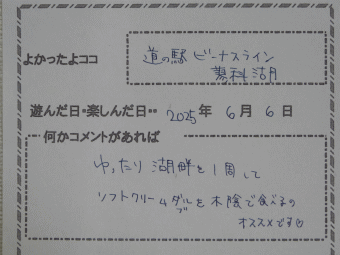 よかったよココ
道の駅 ビーナスライン
蓼科湖
遊んだ日・楽しんだ日・・ 2025年 6月 6日
何かコメントがあれば
ゆったり 湖畔を1周して
ソフトクリームダブルを木陰で食べるの
オススメです♡